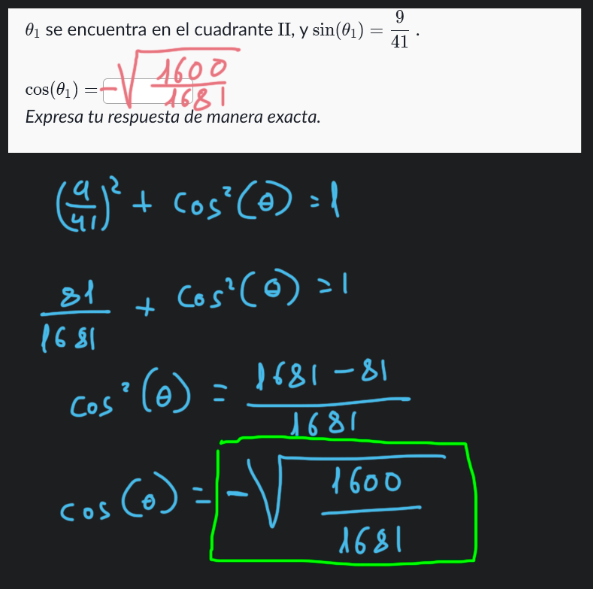 θ₁ se encuentra en el cuadrante II, y sin(θ₁) = 9/41 .
cos(θ₁) = -√(1600/1681)
Expresa tu respuesta de manera exacta.
(9/41)² + cos²(θ) = 1
81/1681 + cos²(θ) = 1
cos²(θ) = (1681 - 81)/1681
cos(θ) = -√(1600/1681)